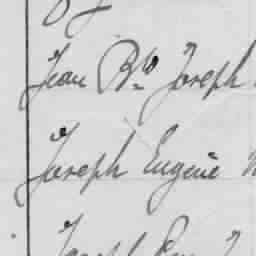 Jean Bte Joseph
Joseph Eugène
Joseph